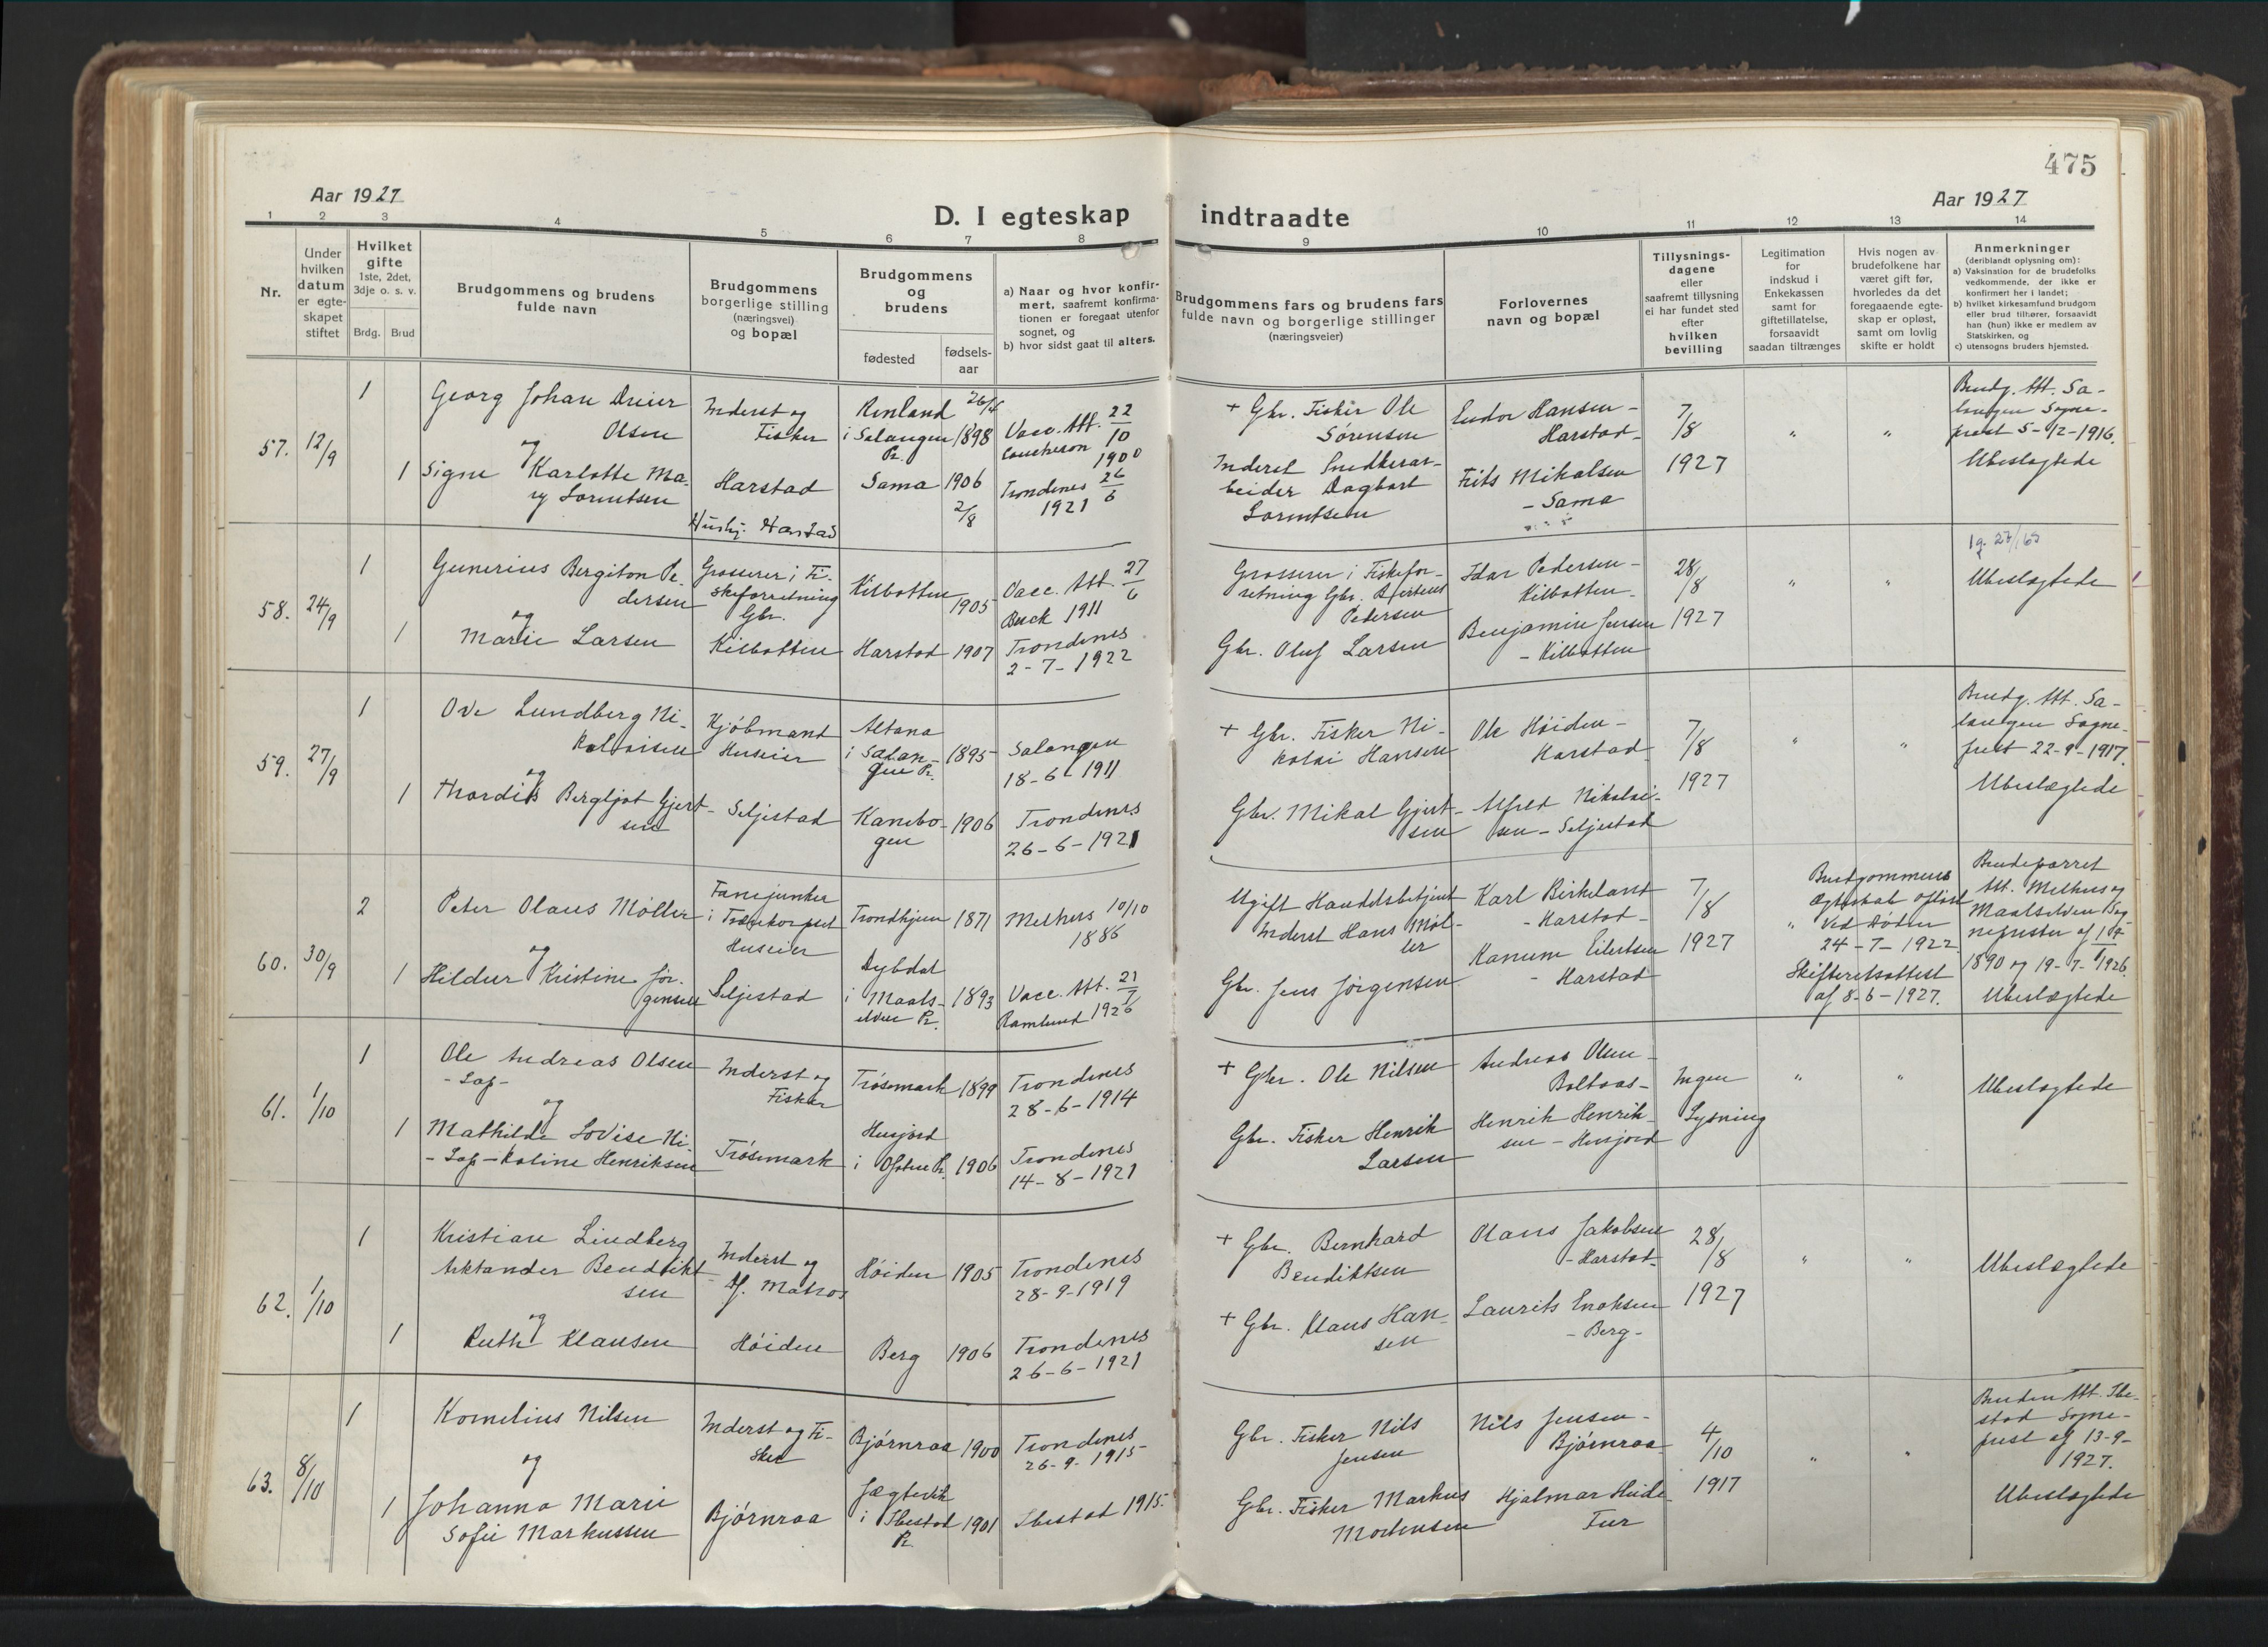 475
Aar 1927
Aar 1927
D. I egteskap indtraadte
1 2 3 4 5 6 7 8 9 10 11 12 13 14
Nr.
Under
hvilken
datum
er egte-
skapet
stiftet
Hvilket
gifte
1ste, 2det,
3dje o. s. v.
Brdg. Brud
Brudgommens og brudens
fulde navn
Brudgommens
borgerlige stilling
(næringsvei)
og bopæl
Brudgommens
og
brudens
fødested
fødsels-
aar
a) Naar og hvor konfir-
mert, saafremt konfirma-
tionen er foregaat utenfor
sognet, og
b) hvor sidst gaat til alters.
Brudgommens fars og brudens fars
fulde navn og borgerlige stillinger
(næringsveier)
Forlovernes
navn og bopæl
Tillysnings-
dagene
eller
saafremt tillysning
ei har fundet sted
efter
hvilken
bevilling
Legitimation
for
indskud i
Enkekassen
samt for
giftetillatelse,
forsaavidt
saadan tiltrænges
Hvis nogen av
brudefolkene har
været gift før,
hvorledes da det
foregaaende egte-
skap er opløst,
samt om lovlig
skifte er holdt
Anmerkninger
(deriblandt oplysning om):
a) Vaksination for de brudefolks
vedkommende, der ikke er
konfirmert her i landet;
b) hvilket kirkesamfund brudgom
eller brud tilhører, forsaavidt
han (hun) ikke er medlem av
Statskirken, og
c) utensogns bruders hjemsted.
57. 12/9
1
Georg Johan Dreier
Olsen
og
1
Signe Karlotte Ma-
ry Lorentsen
Inderst og
Fisker
Harstad
Husby. Harstad
Renland
i Salangen
Pr.
26/4
1898
Sama 1906
2/8
Vacc. Att. 22/10
Coucheron
1900
Trondenes 26/6
1921
+ Gbr. Fisker Ole
Sørensen
Inderst Snedkerar-
beider Dagbart
Lorentsen
Endor Hansen -
Harstad -
Frits Mikalsen
- Sama
7/8
1927
" "
Brudg. Att. Sa-
langen Sogne-
prest 5-12-1916.
Ubeslægtede
58. 24/9
1
Gunerius Bergiton Pe-
dersen
og
1
Marie Larsen
Grosserer i Fi-
skeforretning
Gbr.
Kilbotten
Kilbotten
1905
Harstad 1907
Vacc. Att. 27/6
Buck 1911
Trondenes
2-7-1922
Grosserer i Fiskefor-
retning Gbr.
Pedersen
Gbr. Oluf Larsen
Idar Pedersen -
Kilbotten -
Benjamin Jensen
- Kilbotten
28/8
1927
" "
Ubeslægtede
59. 27/9
1
Ove Lundberg Ni-
kolaisen
og
1
Thordis Bergljot Gjert-
sen
Kjøbmand
Huseier
Seljestad
Altona
i Salan-
gen Pr.
1895
Kanebo-
gen
1906
Salangen
18-6-1911
Trondenes
26-6-1921
+ Gbr. Fisker Ni-
kolai Hansen
Gbr. Mikal Gjert-
sen
Ole Høiden -
Harstad
Alfred Nikolai-
sen - Seljestad
7/8
1927
" "
Brudg. Att. Sa-
langen Sogne-
prest 22-9-1917.
Ubeslægtede
60. 30/9
2
Peter Olaus Møller
og
1
Hildur Kristine Jør-
gensen
Fanejunker
i Trænkorpset
Huseier
Seljestad
Trondhjem 1871
Dybdal
i Maals-
elven Pr.
1893
Melhus 10/10
1886
Vacc. Att. 21/7
Ramlund 1926
Ugift Handelsbetjent
Inderst Hans Møl-
ler
Gbr. Jens Jørgensen
Karl Birkeland
- Harstad -
Hanum Eilertsen
- Harstad
7/8
1927
"
Brudgommens
Egteskab opløst
ved Døden
24-7-1922
Skifteretsattest
af 8-6-1927.
Brudeparret
Att. Melhus og
Maalselven Sog-
neprester af
1890 og 19-7-1926.
Ubeslægtede
61. 1/10
1
Ole Andreas Olsen
- Lap -
og
1
Mathilde Lovise Ni-
- Lap - koline Henriksen
Inderst og
Fisker
Trøsemark
Trøsemark 1899
Husjord
i Ofoten Pr. 1906
Trondenes
28-6-1914
Trondenes
14-8-1921
+ Gbr. Ole Nilsen
Gbr. Fisker Henrik
Larsen
Andreas Olsen -
Boltaas -
Henrik Henrik-
sen - Husjord
Ingen
Lysning
" "
Ubeslægtede
62. 1/10
1
Kristian Lindberg
Arktander Bendikt-
sen
og
1
Ruth Klausen
Inderst og
Matros
Høiden
Høiden 1905
Berg 1906
Trondenes
28-9-1919
Trondenes
26-6-1921
+ Gbr. Bernhard
Bendiktsen
+ Gbr. Klaus Han-
sen
Olaus Jakobsen
- Harstad -
Laurits Enoksen
- Berg -
28/8
1927
" "
Ubeslægtede
63. 8/10
1
Kornelius Nilsen
og
1
Johanna Marie
Sofie Markussen
Inderst og Fi-
sker
Bjørnraa
Bjørnraa 1900
Jægtevik
i Ibestad 1901
Pr.
Trondenes
26-9-1915
Ibestad 1915.
Gbr. Fisker Nils
Jensen
Gbr. Fisker Markus
Mortensen
Nils Jensen -
Bjørnraa
Hjalmar Heide
4/10
1917
" "
Bruden Att. Ibe-
stad Sogne-
prest af 13-9-
1927.
Ubeslægtede